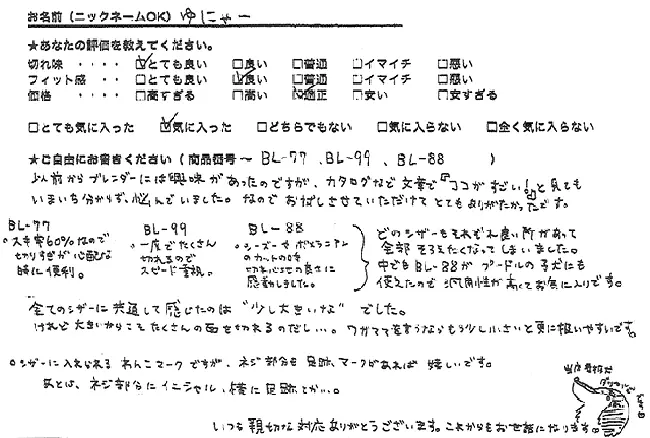 お名前（ニックネームOK） ゆにゃー
★あなたの評価を教えてください。
切れ味 ・・・・ ☑とても良い □良い □普通 □イマイチ □悪い
フィット感 ・・・・ □とても良い ☑良い □普通 □イマイチ □悪い
価格 ・・・・ □高すぎる □高い ☑適正 □安い □安すぎる
□とても気に入った ☑気に入った □どちらでもない □気に入らない □全く気に入らない
★ご自由にお書きください（商品番号～ BL-77、BL-99、BL-88 ）
以前からブレンダーには興味があったのですが、カタログなど文章で『ココがすごい！』と見ても
いまいち分からず、悩んでいました。なのでおためしさせていただけてとてもありがたかったです。
BL-77
。スキ率60%なので
切りすぎが心配な
時に便利。
BL-99
。一度でたくさん
切れるので
スピード重視。
BL-88
。シーズーやポメラニアン
のカットの時
切れ心地の良さに
感動しました。
どのシザーもそれぞれ良い所があって
全部そろえたくなってしまいました。
中でもBL-88がプードルの子犬にも
使えたので汎用性が高くてお気に入りです。
全てのシザーに共通して感じたのは“少し大きいな”でした。
けれど大きいからこそたくさんの面を切れるのだし…。ワガママを言うならもう少し小さいと更に扱いやすいです。
。シザーに入れられるわんこマークですが、ネジ部分も足跡マークがあれば嬉しいです。
あとは、ネジ部分にイニシャル、横に足跡とかい。
いつも親切な対応ありがとうございます。これからもお世話になります。